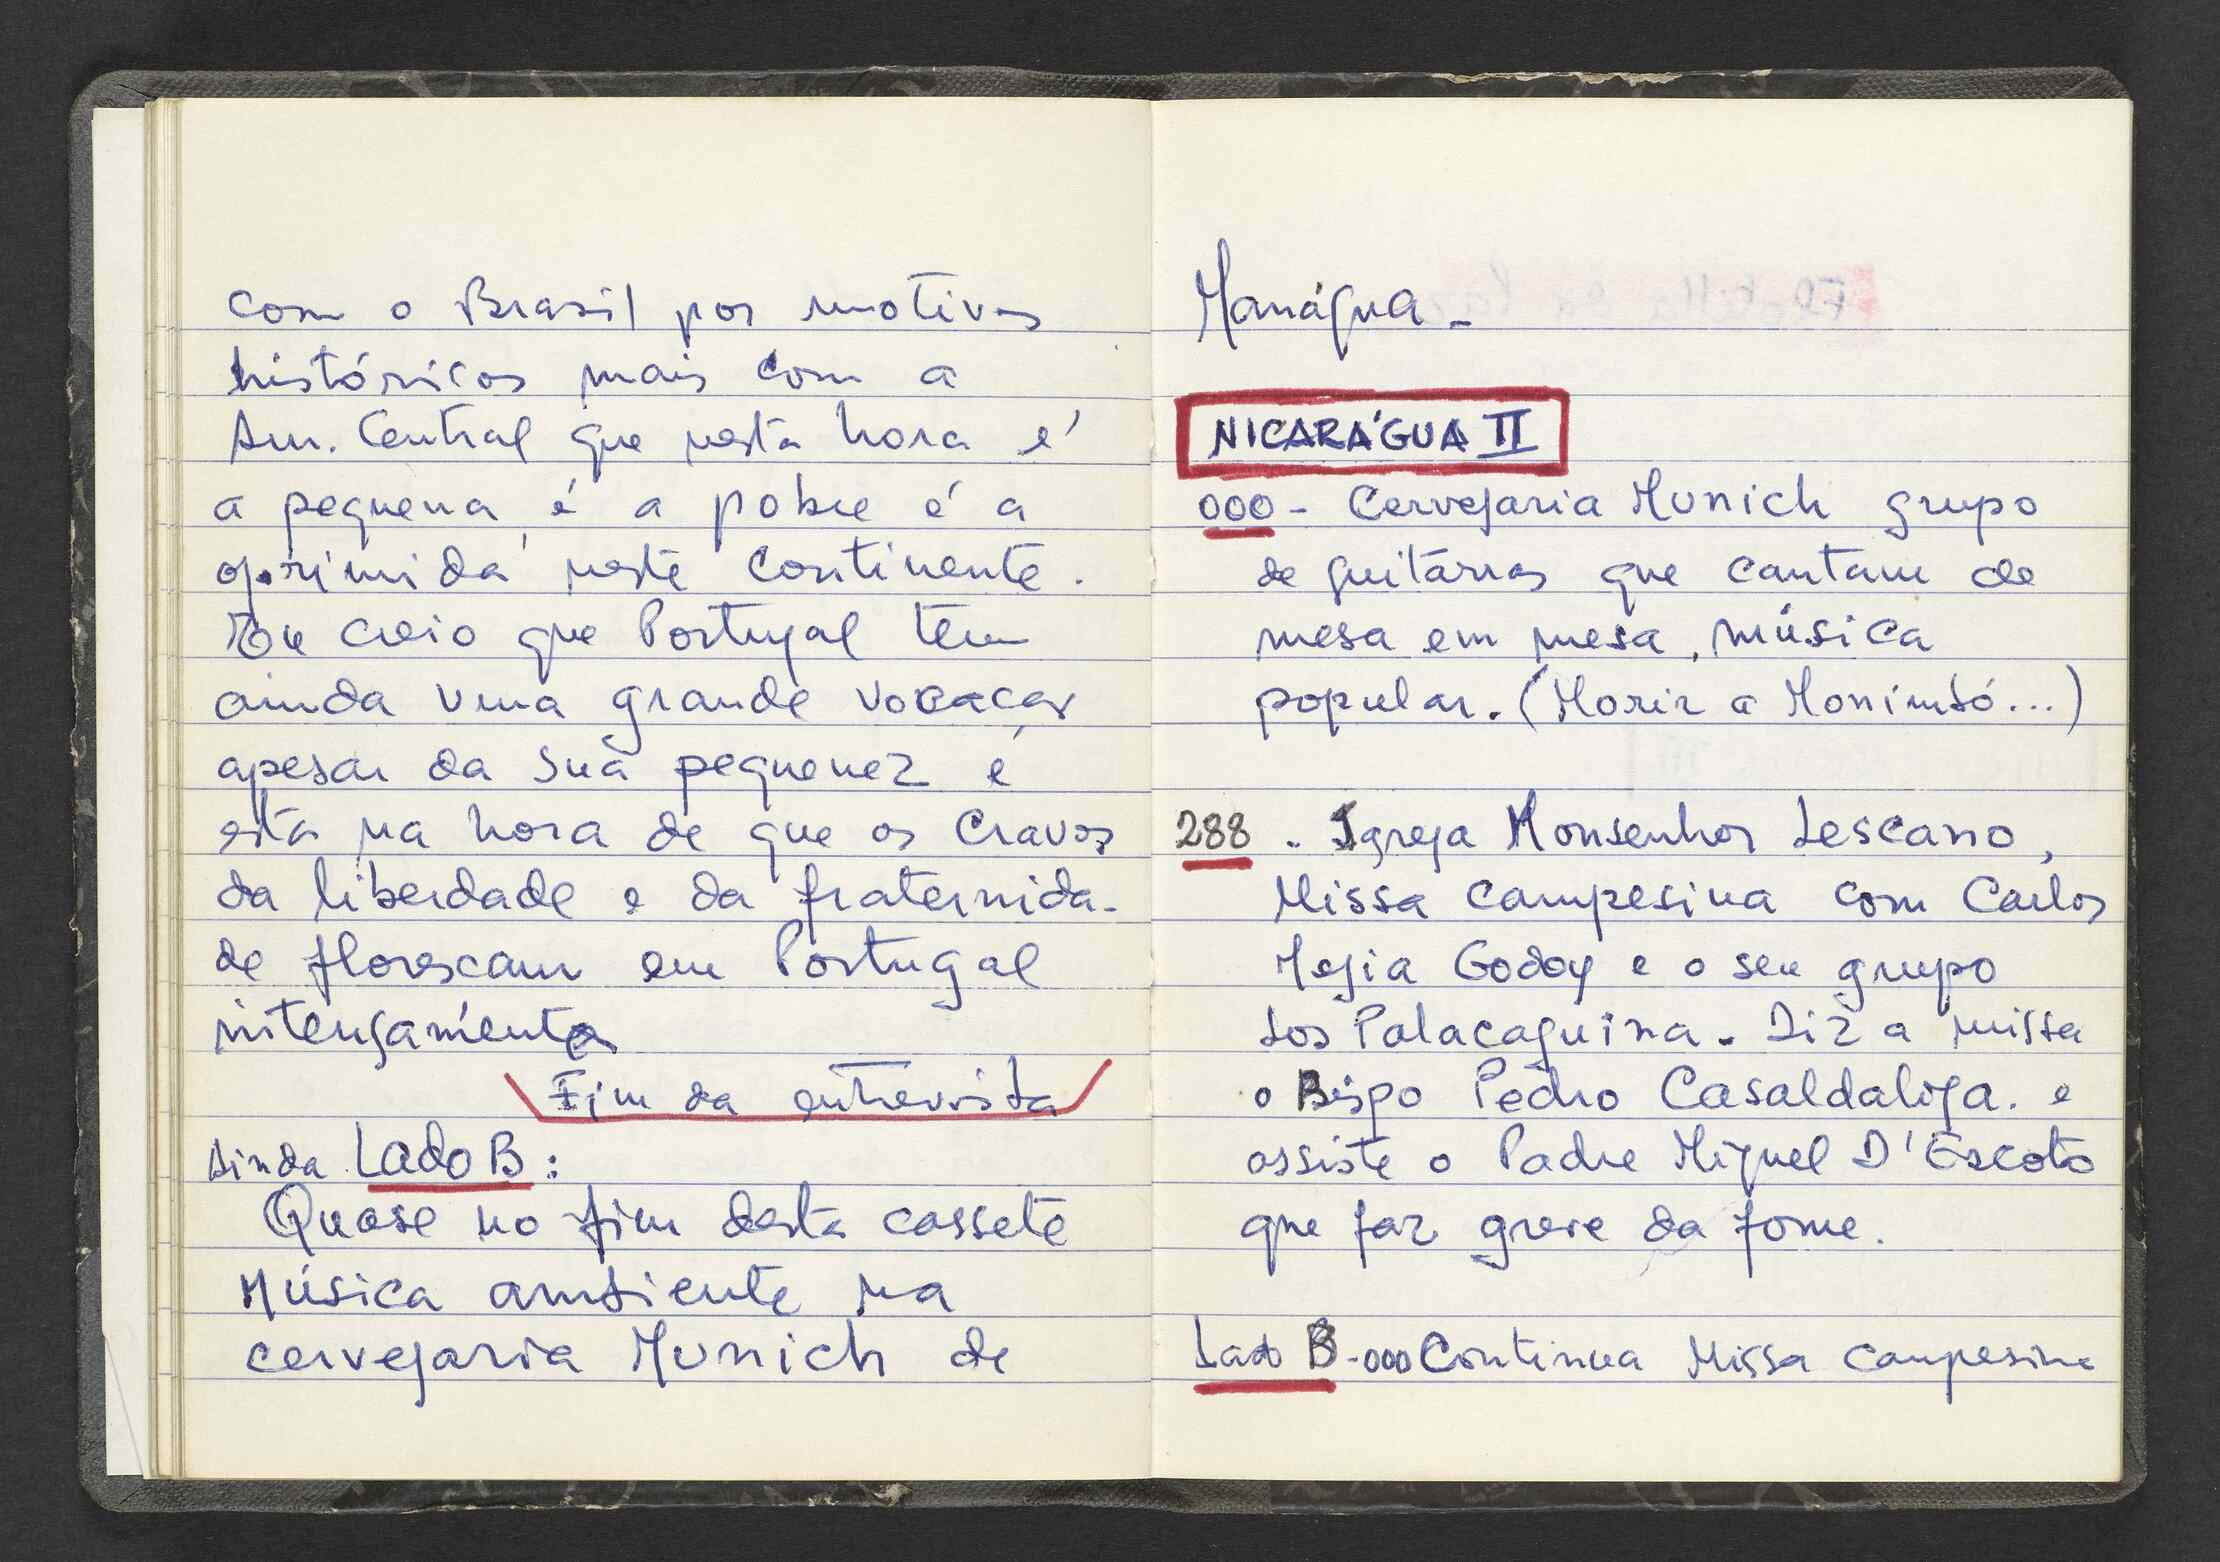 com o Brasil por motivos
históricos mais com a
Am. Central que nesta hora é
a pequena, é a pobre é a
oprimida neste continente.
Eu creio que Portugal tem
ainda uma grande vocacao
apesar da sua pequenez e
está na hora de que os cravos
da liberdade e da fraternida-
de floresçam em Portugal
intensamente
Fim da entrevista
Ainda Lado B:
Quase no fim desta cassete
Música ambiente na
cervejaria Munich de
Manágua -
NICARÁGUA II
000 - Cervejaria Munich grupo
de guitarras que cantam de
mesa em mesa, música
popular. (Morir a Monimbó...)
288 . Igreja Monsenhor Lescano,
Missa campesina com Carlos
Mejia Godoy e o seu grupo
Los Palacaguina. Diz a missa
o Bispo Pedro Casaldaliga. e
assiste o Padre Miguel D'Escoto
que faz greve da fome.
Lado B - 000 Continua Missa campesina